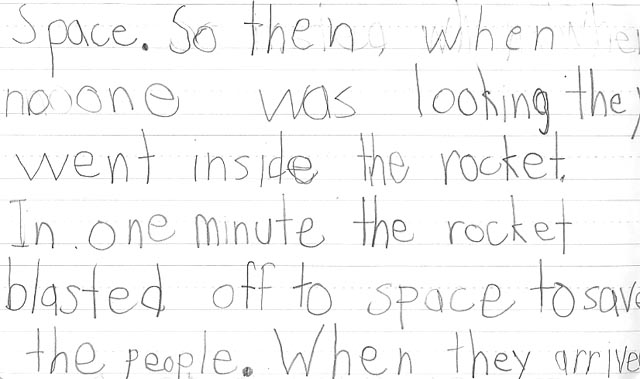 Space. So then, when
no one was looking they
went inside the rocket.
In one minute the rocket
blasted off to space to save
the people. When they arrive